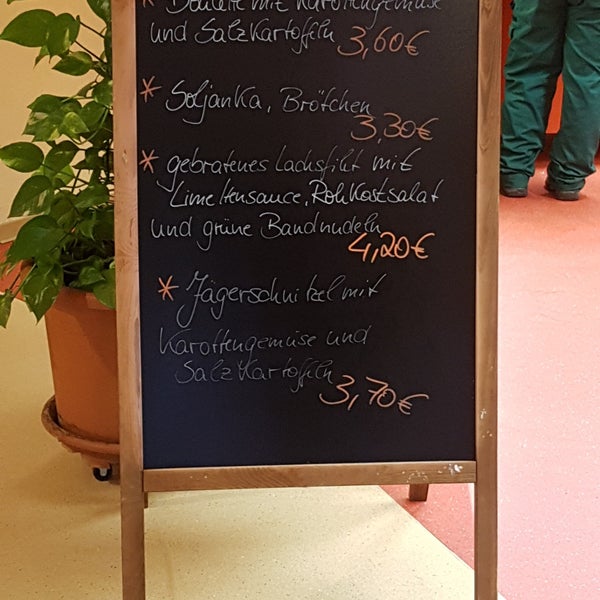 * Boulette mit Karottengemüse
und Salzkartoffeln 3,60€
* Soljanka, Brötchen
3,30€
* gebratenes Lachsfilet mit
Limettensauce, Rohkostsalat
und grüne Bandnudeln
4,20€
* Jägerschnitzel mit
Karottengemüse und
Salzkartoffeln
3,70€